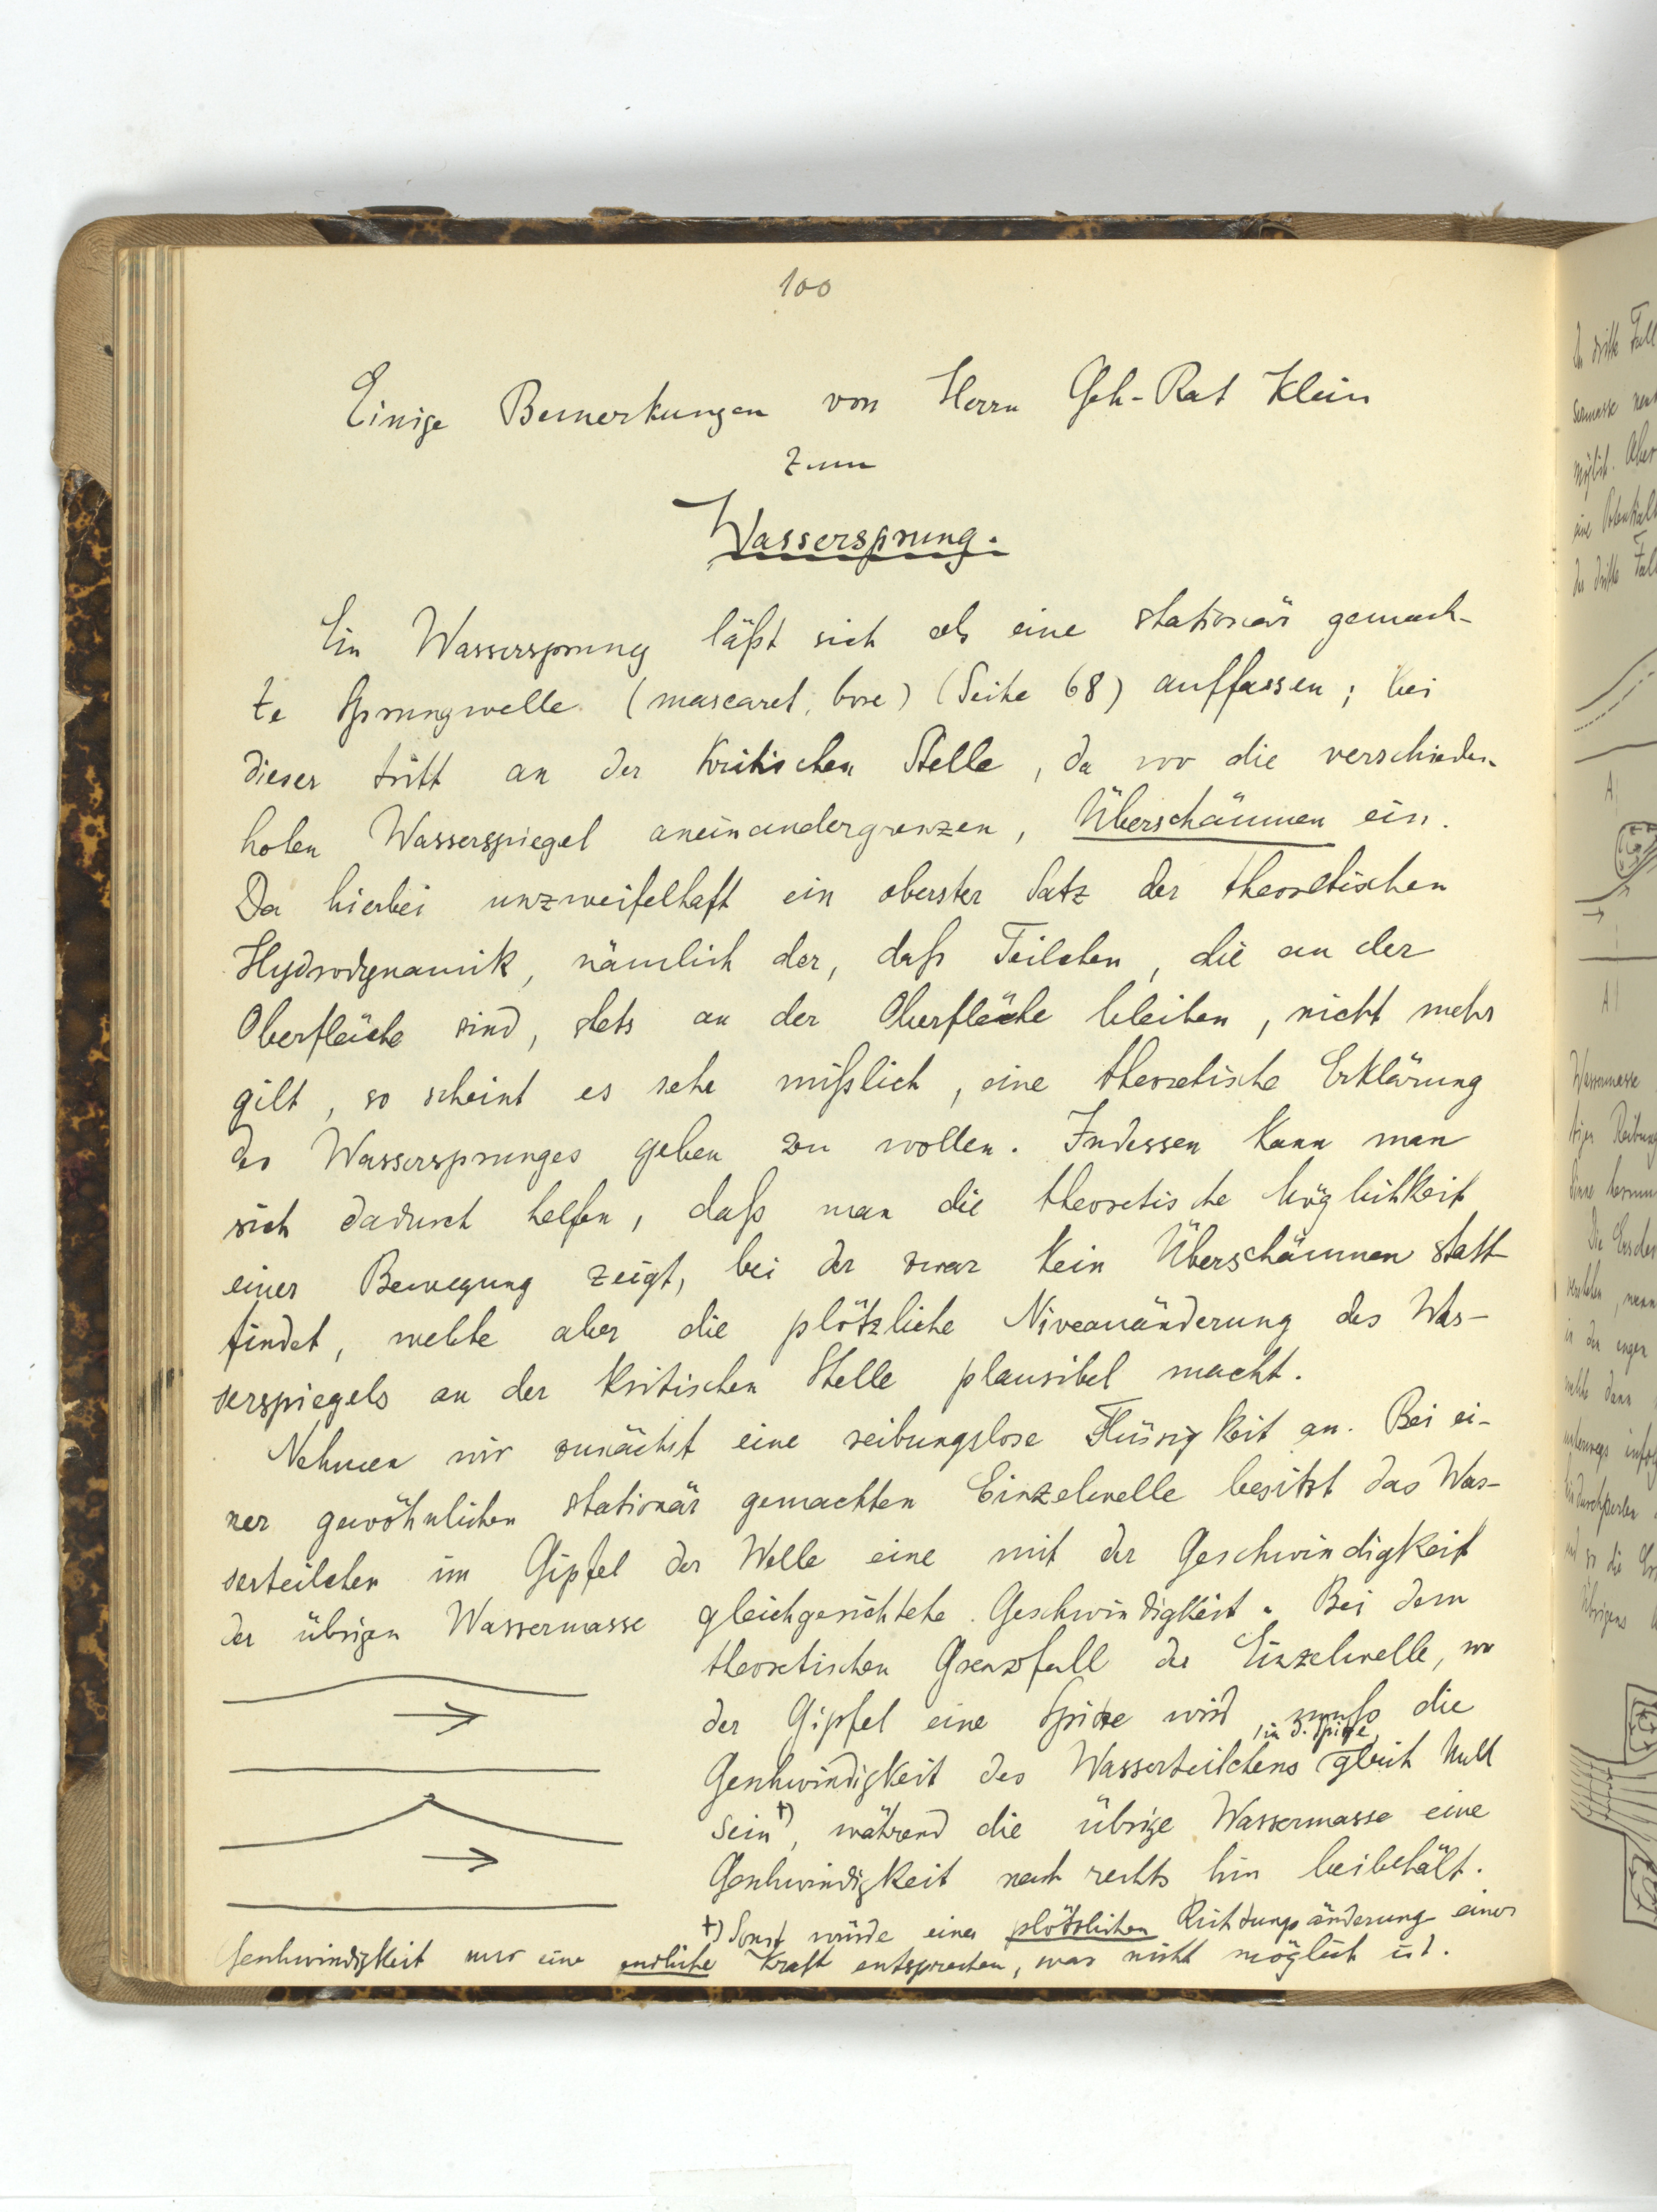 100
Einige Bemerkungen von Herrn Geh-Rat Klein
zum
Wassersprung.
Ein Wassersprung läßt sich als eine stationär gemach-
te Sprungwelle (mascaret, bore) (Seite 68) auffassen; bei
dieser tritt an der kritischen Stelle, da wo die verschieden
hohen Wasserspiegel aneinandergrenzen, Überschäumen ein.
Da hierbei unzweifelhaft ein oberster Satz der theoretischen
Hydrodynamik, nämlich der, daß Teilchen, die an der
Oberfläche sind, stets an der Oberfläche bleiben, nicht mehr
gilt, so scheint es sehr mißlich, eine theoretische Erklärung
des Wassersprunges geben zu wollen. Indessen kann man
sich dadurch helfen, daß man die theoretische Möglichkeit
einer Bewegung zeigt, bei der zwar kein Überschäumen statt
findet, welche aber die plötzliche Niveauänderung des Was-
serspiegels an der kritischen Stelle plausibel macht.
Nehmen wir zunächst eine reibungslose Flüssigkeit an. Bei ei-
ner gewöhnlichen stationär gemachten Einzelwelle besitzt das Was-
serteilchen im Gipfel der Welle eine mit der Geschwindigkeit
der übrigen Wassermasse gleichgerichtete Geschwindigkeit. Bei dem
theoretischen Grenzfall der Einzelwelle, wo
der Gipfel eine Spitze wird, muß die
Geschwindigkeit des Wasserteilchens in d. Spitze gleich Null
sein†), während die übrige Wassermasse eine
Geschwindigkeit nach rechts hin beibehält.
†) Sonst würde einer plötzlichen Richtungsänderung einer
Geschwindigkeit nur eine endliche Kraft entsprechen, was nicht möglich ist.